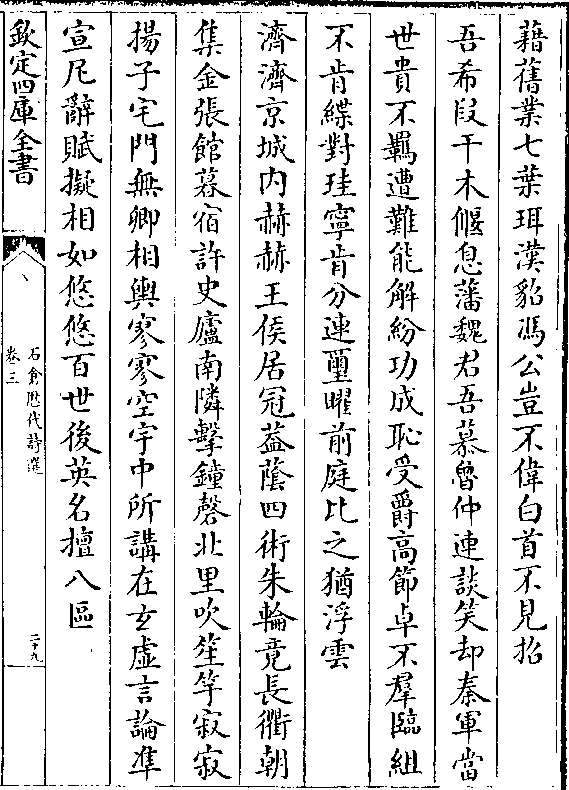 藉舊業七葉珥漢貂馮公豈不偉白首不見招
吾希段干木偃息藩魏君吾慕魯仲連談笑却秦軍當
世貴不羈遭難能解紛功成恥受爵高節卓不羣臨組
不肯緤對珪寧肯分連璽曜前庭比之猶浮雲
濟濟京城內赫赫王侯居冠葢蔭四術朱輪竟長衢朝
集金張館暮宿許史廬南隣擊鐘磬北里吹笙竽寂寂
揚子宅門無卿相輿寥寥空宇中所講在玄虛言論准
宣尼辭賦擬相如悠悠百世後英名擅八區
欽定四庫全書
石倉歷代詩選
卷三
二十九